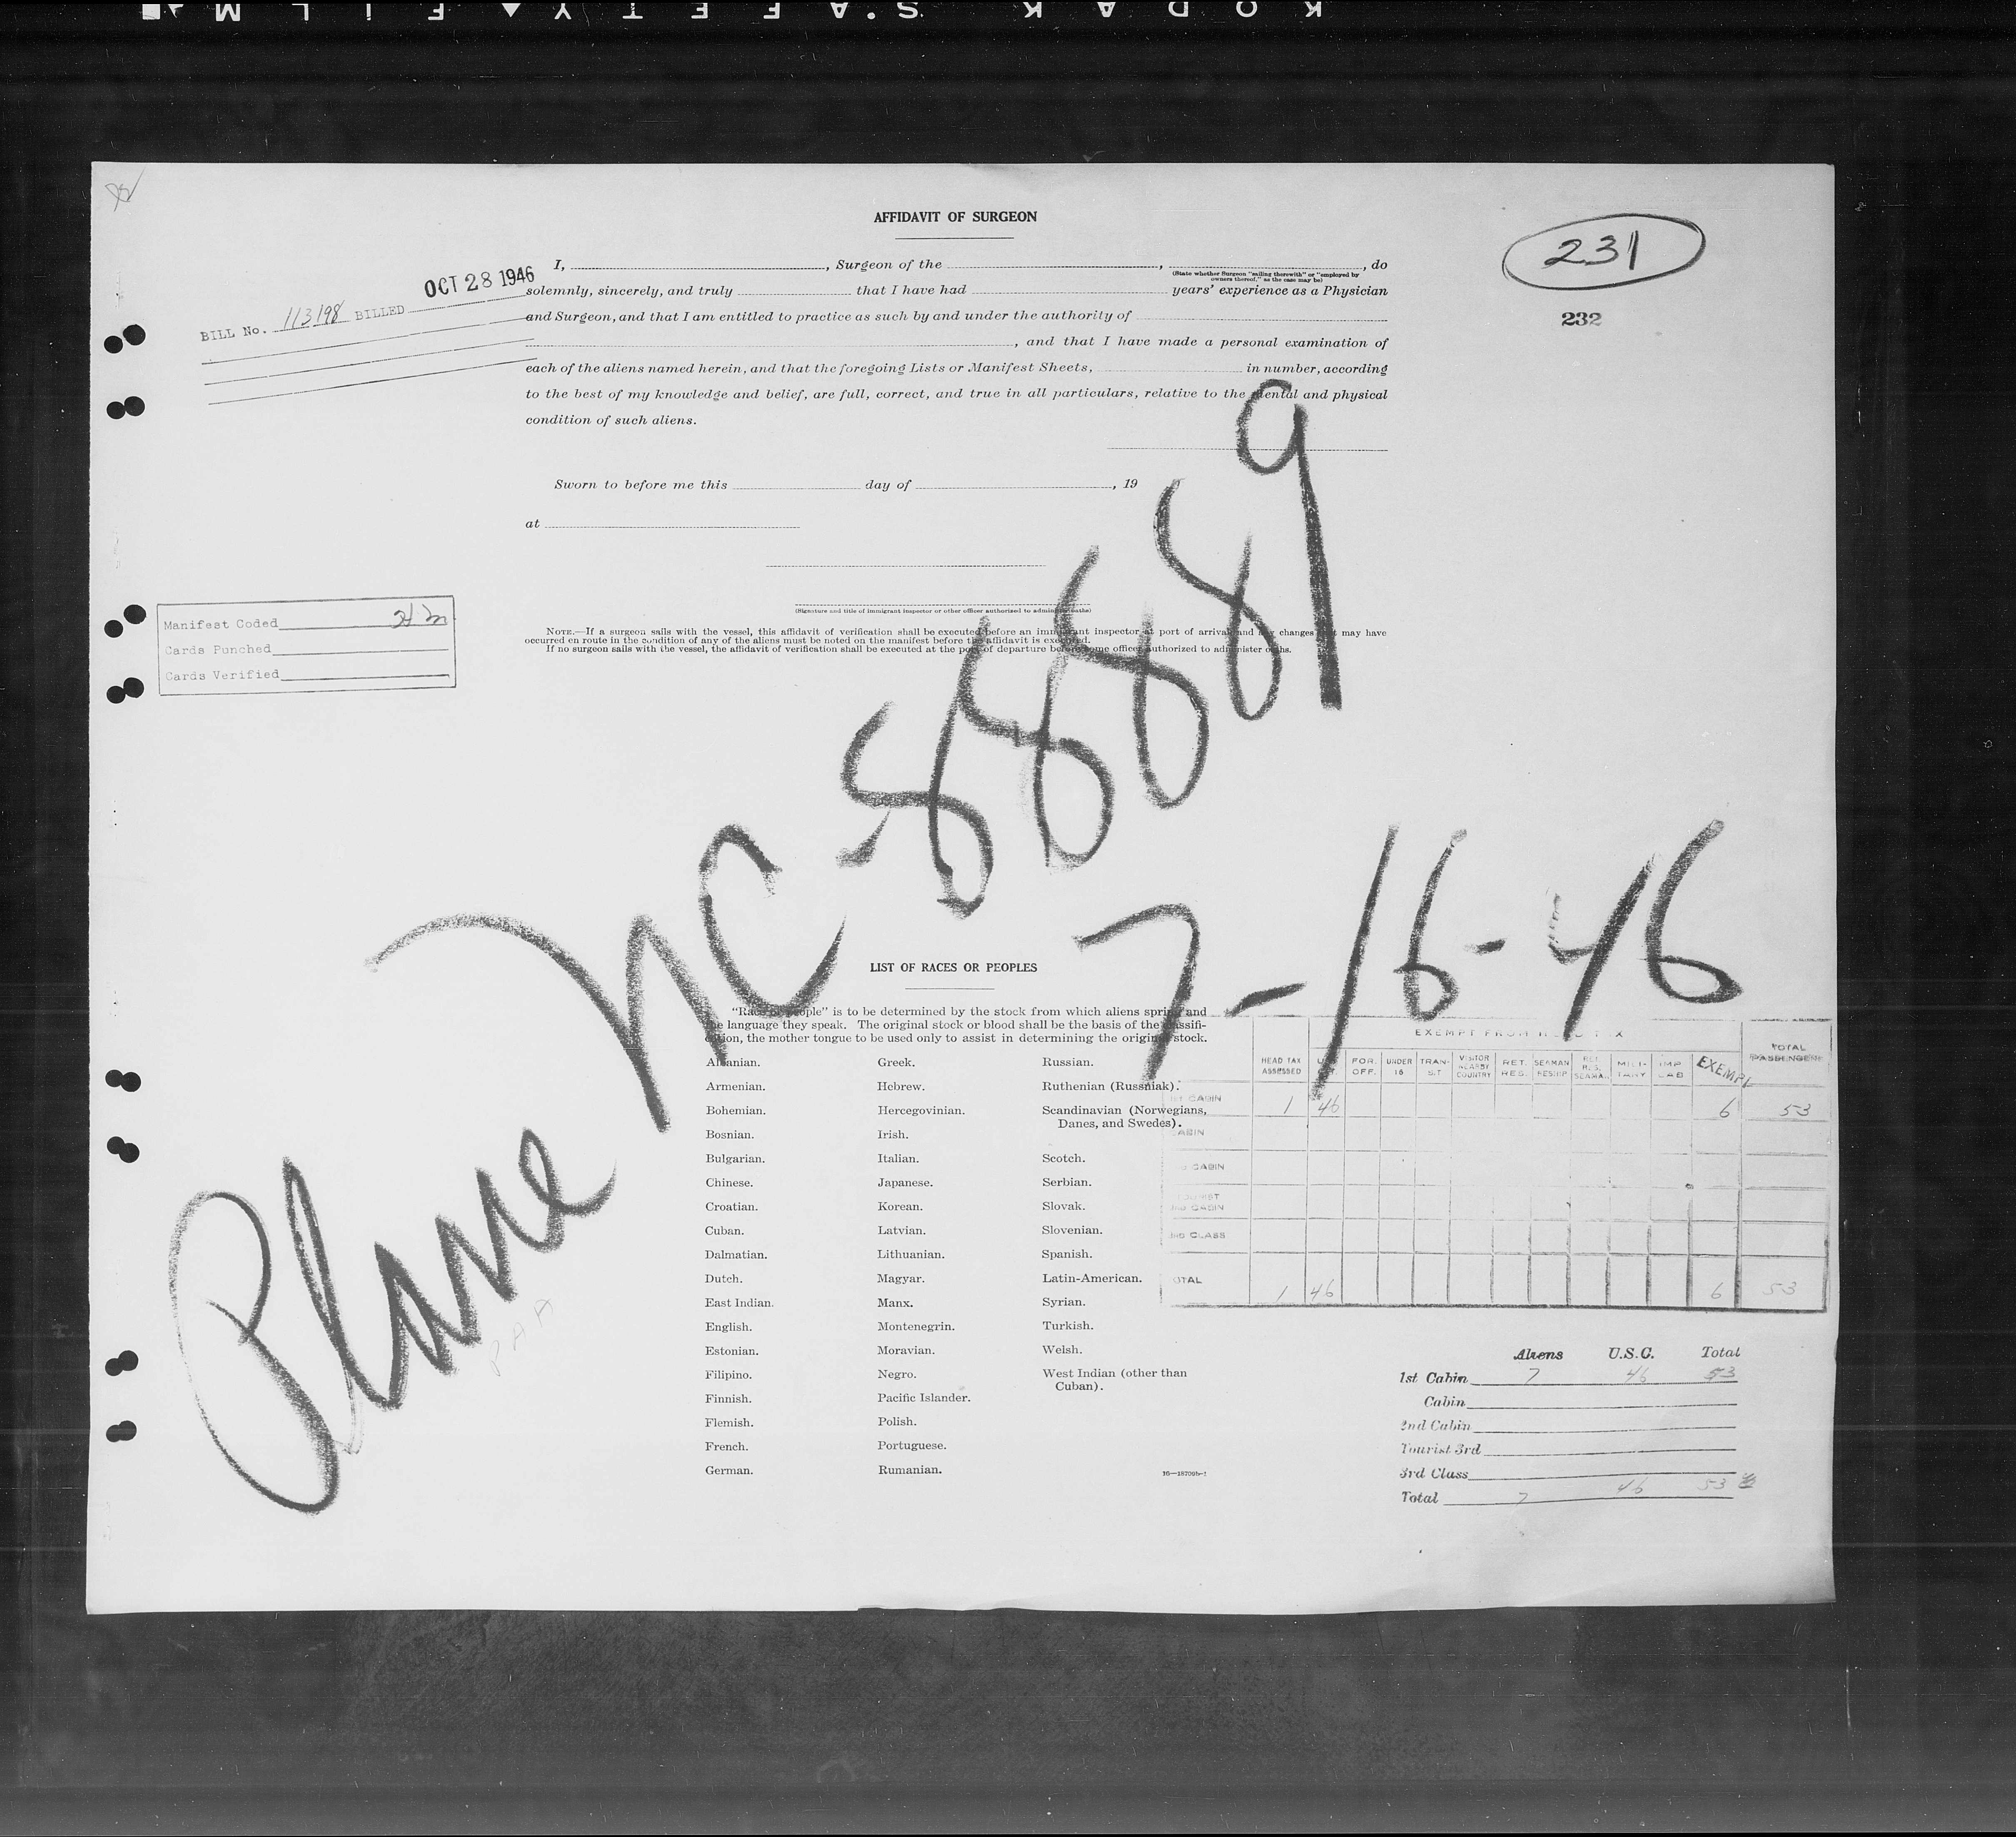 KODAK SAFETY FILM
AFFIDAVIT OF SURGEON
231
232
I, , Surgeon of the , , do
(State whether Surgeon "sailing therewith" or "employed by owners thereof," as the case may be)
OCT 28 1946
BILL No. 113198 BILLED
solemnly, sincerely, and truly that I have had years' experience as a Physician
and Surgeon, and that I am entitled to practice as such by and under the authority of
, and that I have made a personal examination of
each of the aliens named herein, and that the foregoing Lists or Manifest Sheets, in number, according
to the best of my knowledge and belief, are full, correct, and true in all particulars, relative to the mental and physical
condition of such aliens.
Sworn to before me this day of , 19
at
(Signature and title of immigrant inspector or other officer authorized to administer oaths)
Manifest Coded
Cards Punched
Cards Verified
NOTE.—If a surgeon sails with the vessel, this affidavit of verification shall be executed before an immigrant inspector at port of arrival and any changes that may have
occurred en route in the condition of any of the aliens must be noted on the manifest before the affidavit is executed.
If no surgeon sails with the vessel, the affidavit of verification shall be executed at the port of departure before some officer authorized to administer oaths.
Plane NC-88889
7-16-46
PAA
LIST OF RACES OR PEOPLES
"Race or people" is to be determined by the stock from which aliens spring and
the language they speak. The original stock or blood shall be the basis of the classifi-
cation, the mother tongue to be used only to assist in determining the original stock.
Albanian.
Armenian.
Bohemian.
Bosnian.
Bulgarian.
Chinese.
Croatian.
Cuban.
Dalmatian.
Dutch.
East Indian.
English.
Estonian.
Filipino.
Finnish.
Flemish.
French.
German.
Greek.
Hebrew.
Hercegovinian.
Irish.
Italian.
Japanese.
Korean.
Latvian.
Lithuanian.
Magyar.
Manx.
Montenegrin.
Moravian.
Negro.
Pacific Islander.
Polish.
Portuguese.
Rumanian.
Russian.
Ruthenian (Russniak).
Scandinavian (Norwegians,
Danes, and Swedes).
Scotch.
Serbian.
Slovak.
Slovenian.
Spanish.
Latin-American.
Syrian.
Turkish.
Welsh.
West Indian (other than
Cuban).
16—18709b-1
EXEMPT FROM HEAD TAX
HEAD TAX ASSESSED FOR. OFF. UNDER 16 TRAN-SIT VISITOR NEARBY COUNTRY RET. RES. SEAMAN RESHIP RET. RES. SEAMAN MILI-TARY IMP LAB EXEMPT TOTAL PASSENGERS
1st CABIN 1 46 6 53
CABIN
CABIN
TOURIST
3rd CABIN
3rd CLASS
TOTAL 1 46 6 53
Aliens U.S.C. Total
1st Cabin 7 46 53
Cabin
2nd Cabin
Tourist 3rd
3rd Class
Total 7 46 53